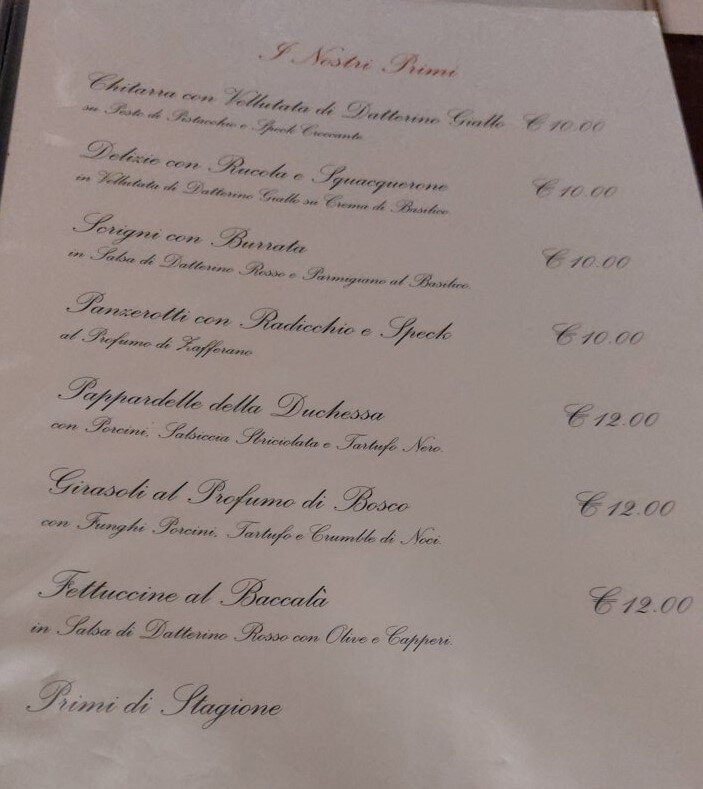 I Nostri Primi
Chitarra con Vellutata di Datterino Giallo € 10.00
su Pesto di Pistacchio e Speck Croccante
Delizie con Rucola e Squacquerone € 10.00
in Vellutata di Datterino Giallo su Crema di Basilico
Scrigni con Burrata € 10.00
in Salsa di Datterino Rosso e Parmigiano al Basilico.
Panzerotti con Radicchio e Speck € 10.00
al Profumo di Zafferano
Pappardelle della Duchessa € 12.00
con Porcini, Salsiccia Sbriciolata e Tartufo Nero.
Girasoli al Profumo di Bosco € 12.00
con Funghi Porcini, Tartufo e Crumble di Noci.
Fettuccine al Baccalà € 12.00
in Salsa di Datterino Rosso con Olive e Capperi.
Primi di Stagione